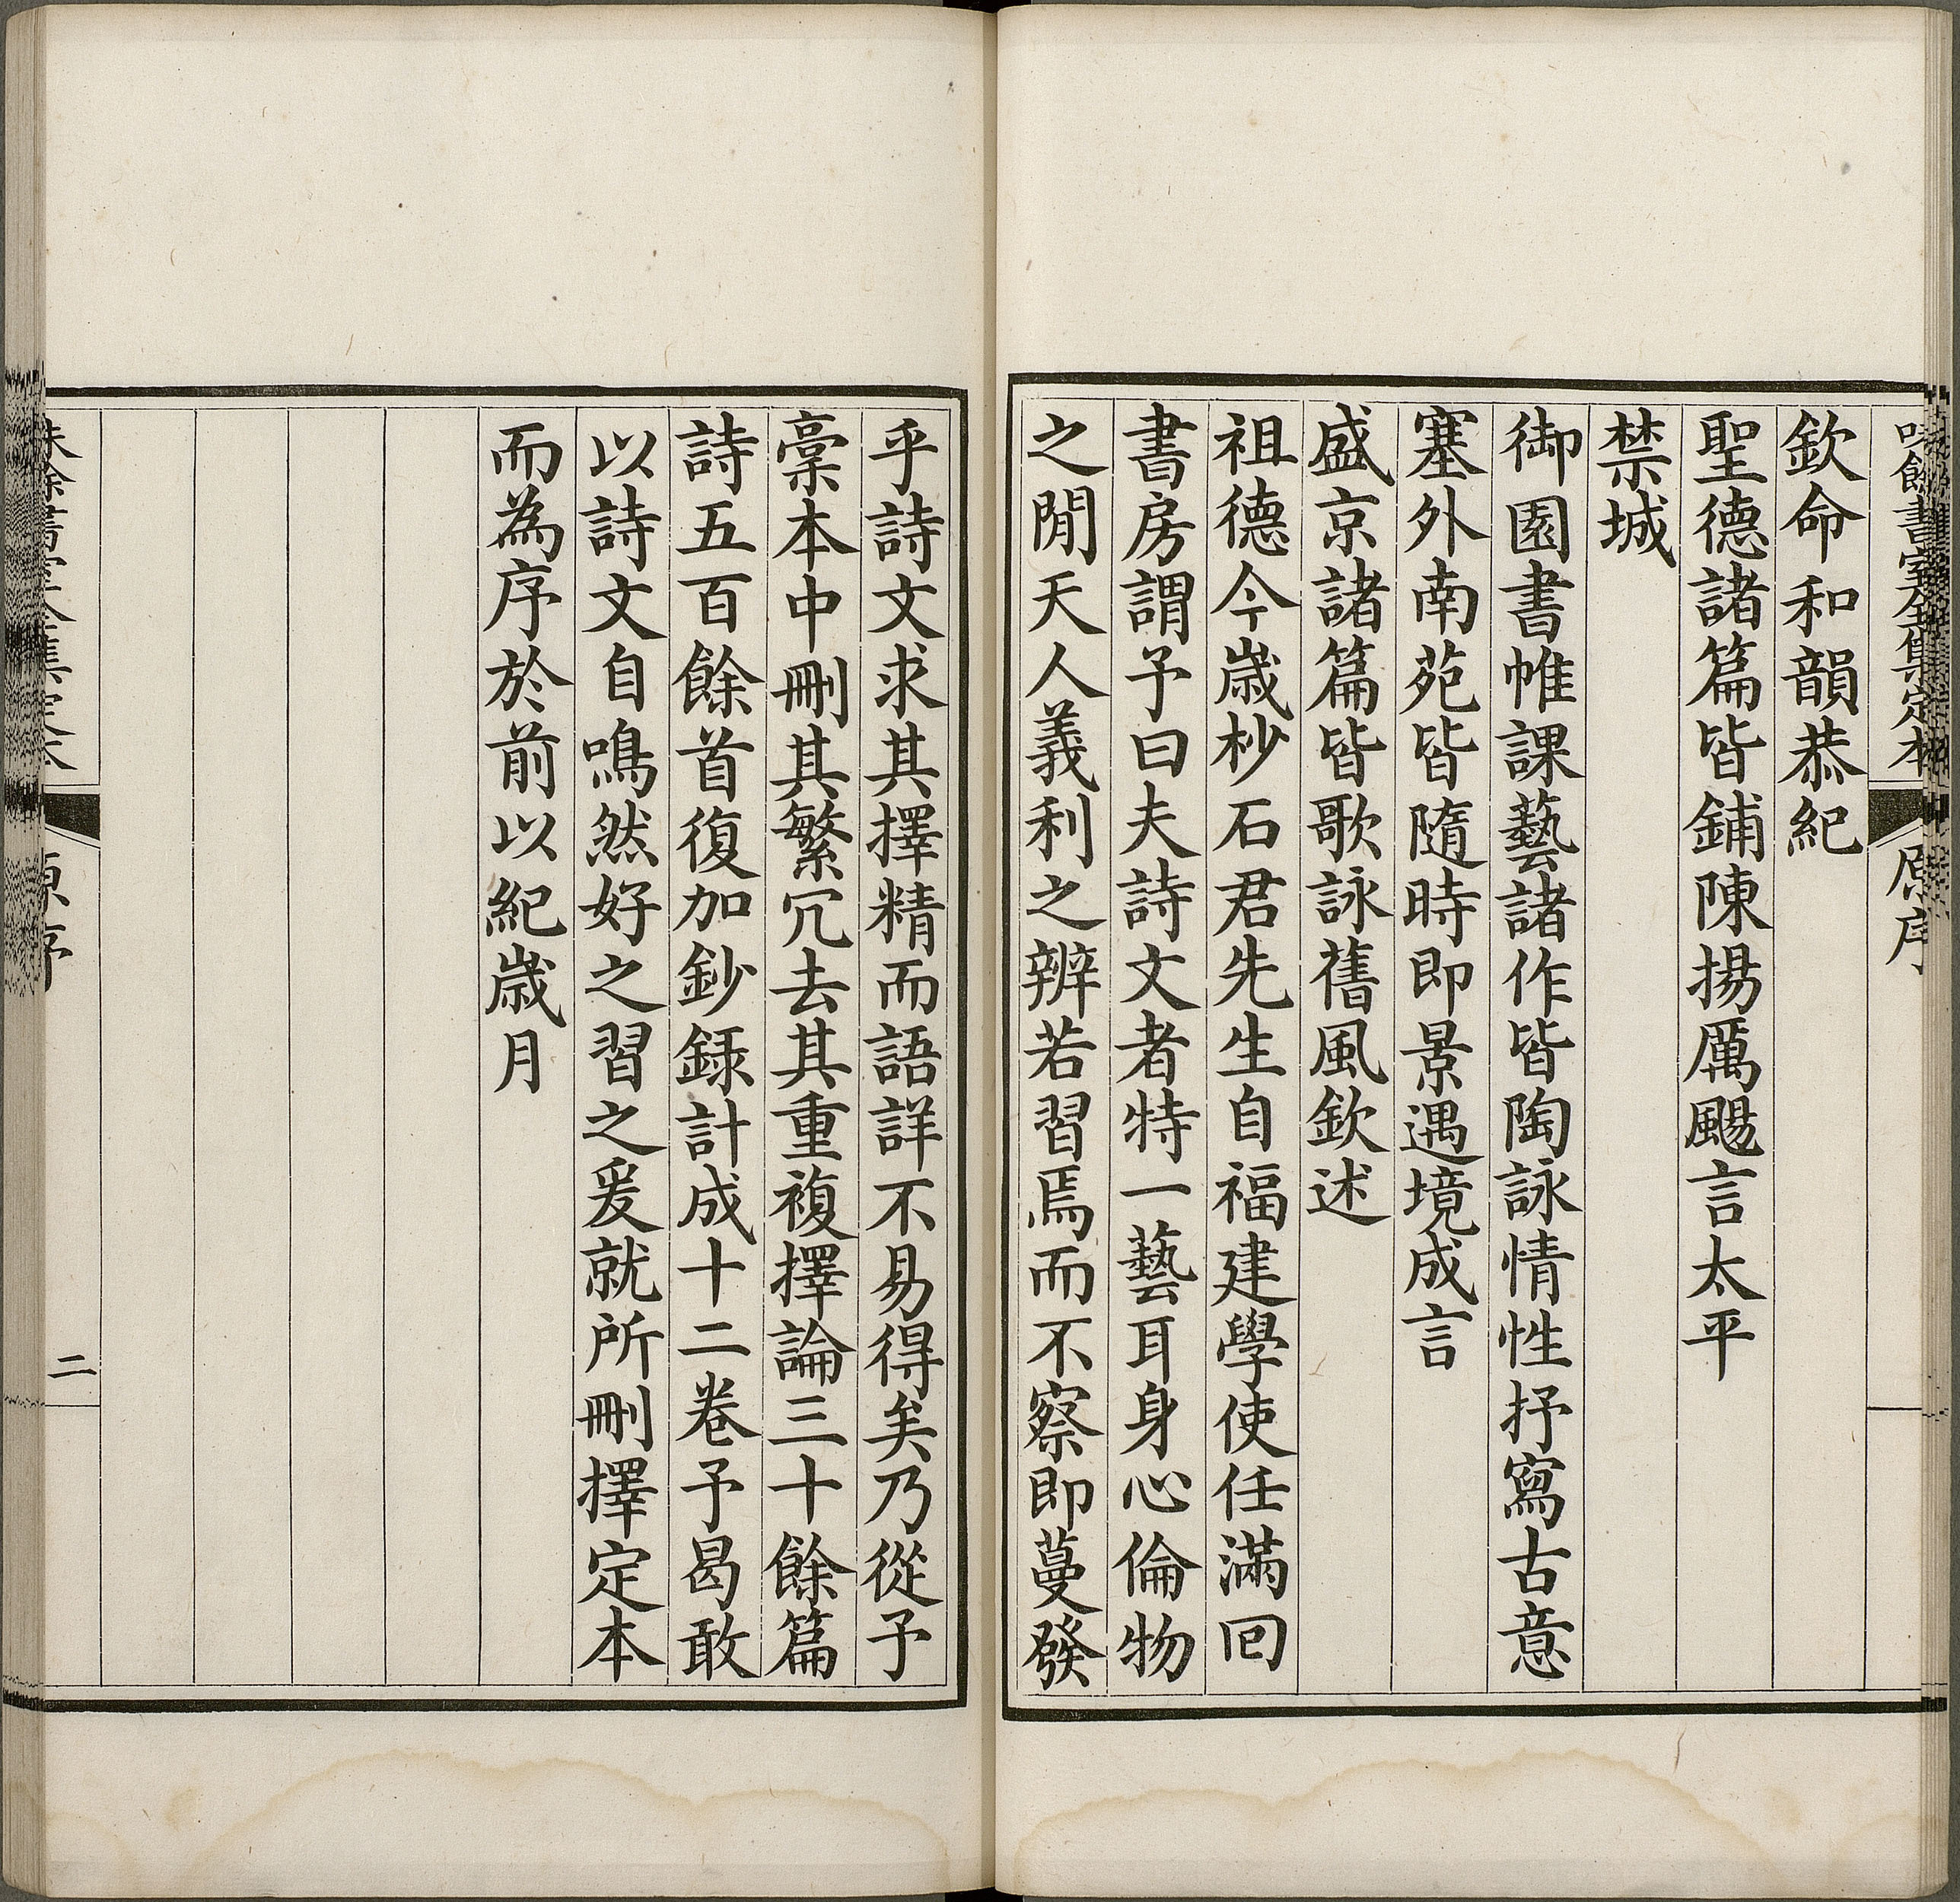 味餘書室全集定本 原序
欽命和韻恭紀
聖德諸篇皆鋪陳揚厲颺言太平
禁城
御園書帷課藝諸作皆陶詠情性抒寫古意
塞外南苑皆隨時即景遇境成言
盛京諸篇皆歌詠舊風欽述
祖德今歲杪石君先生自福建學使任滿回
書房謂予曰夫詩文者特一藝耳身心倫物
之閒天人義利之辨若習焉而不察即蔓發
乎詩文求其擇精而語詳不易得矣乃從予
稾本中刪其繁冗去其重複擇論三十餘篇
詩五百餘首復加鈔録計成十二卷予曷敢
以詩文自鳴然好之習之爰就所刪擇定本
而為序於前以紀歲月
味餘書室全集定本 原序 二